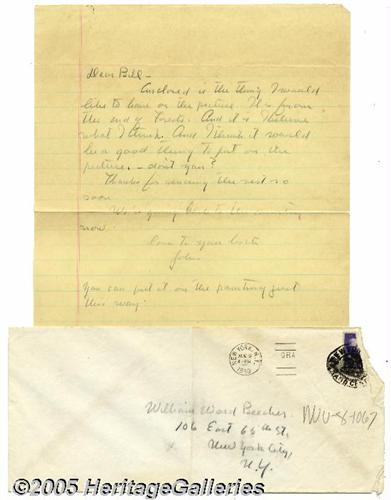 Dear Bill -
Enclosed is the thing I would
like to have on the picture. It's from
the end of Forests. And it is
what I think. And I think it would
be a good thing to put on the
picture. - don't you?
Thanks for sending the rest so
soon.
We're going back to the country
now.
Love to you both
John
You can put it on the painting just
this way.
NEW YORK, N.Y.
1940
William Ward Beecher
106 East 65th St,
New York City,
N.Y.
©2005 HeritageGalleries